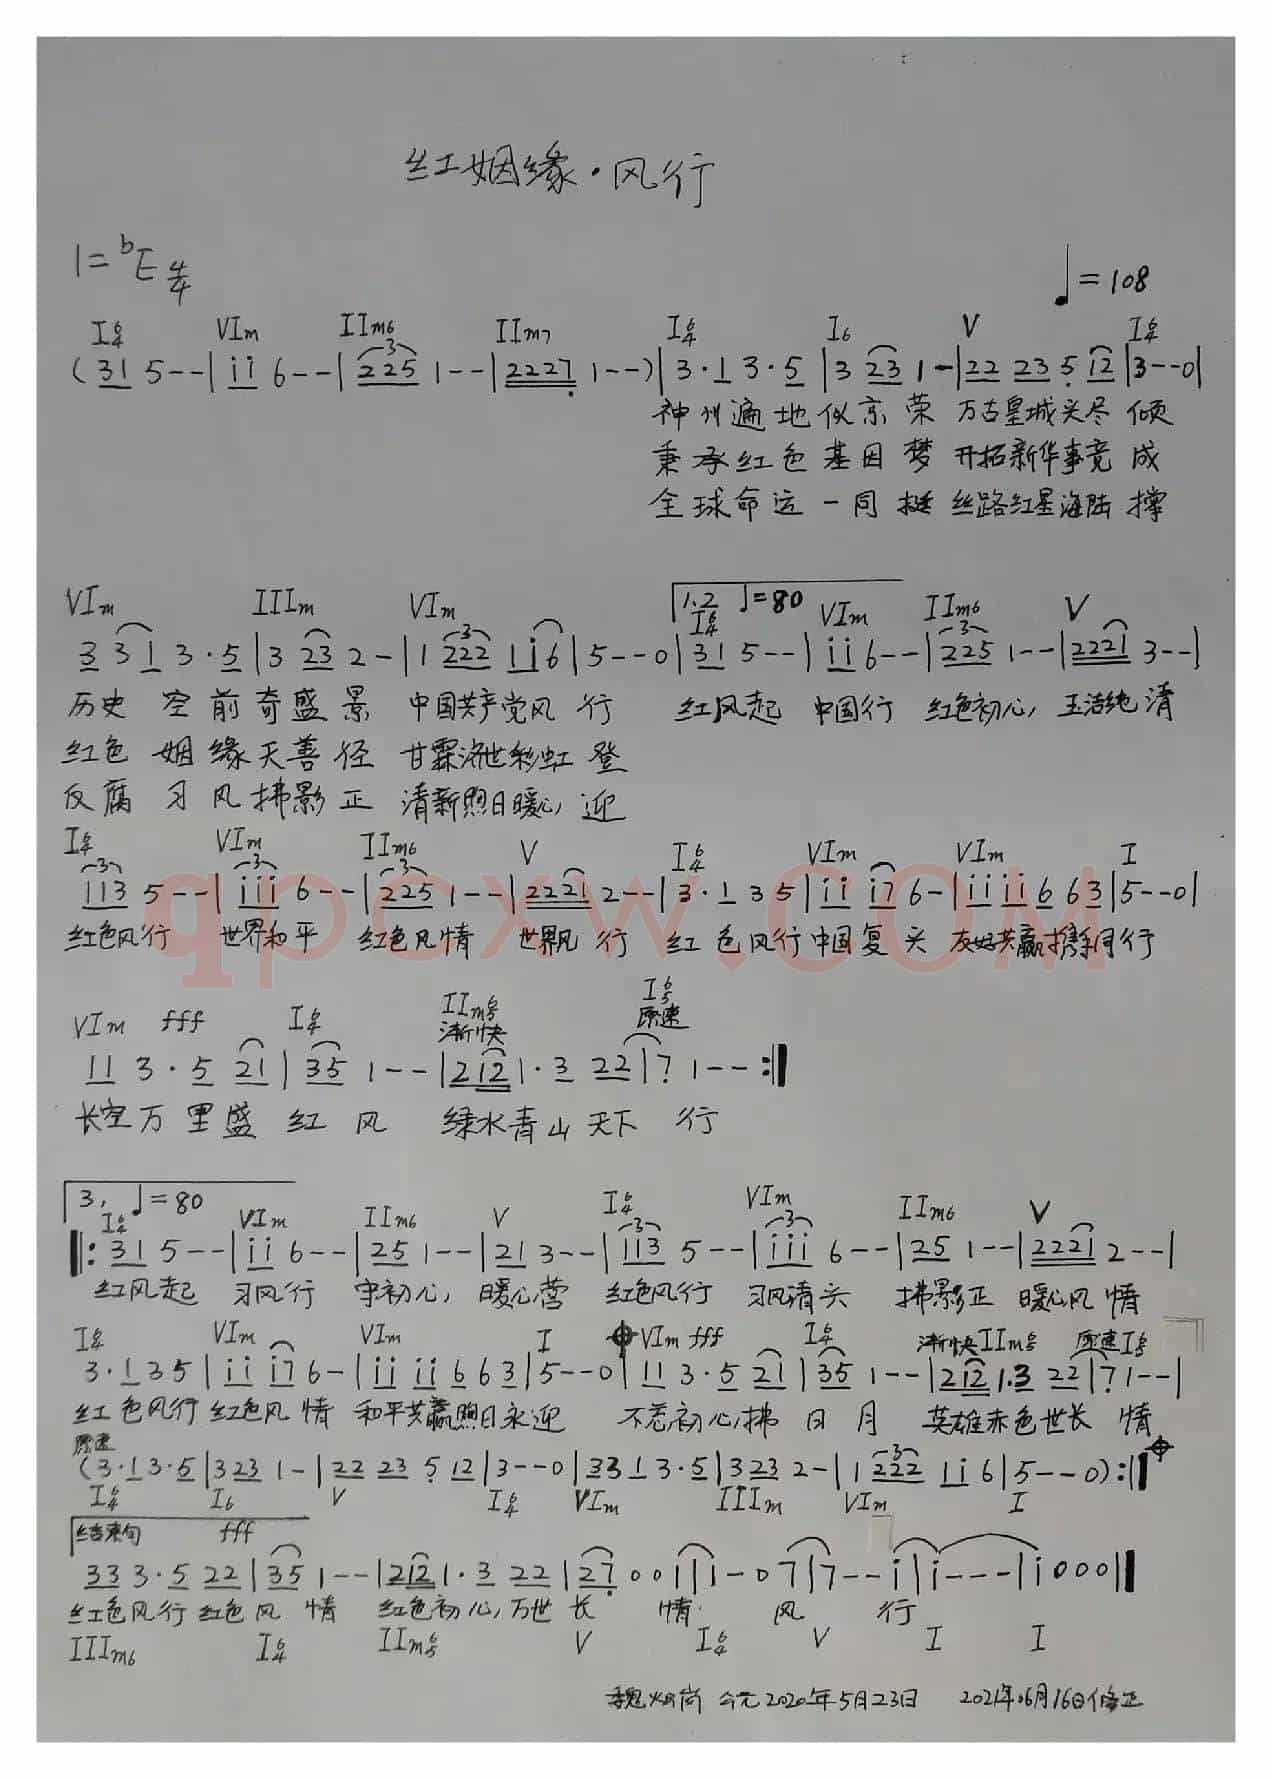 红姻缘·风行
1=ᵇE 4/4
♩=108
I6/4 VIm IIm6 IIm7 I6/4 I6 V I6/4
(31 5--|i i 6--|225 1--|2227 1--)|3·1 3·5|3 23 1-|22 23 5 12|3--0|
神州遍地似京荣 万古皇城头尽倾
秉承红色基因梦 开拓新华事竟成
全球命运一同挺 丝路红星海陆撑
VIm IIIm VIm 1.2 ♩=80 I6/4 VIm IIm6 V
3 31 3·5|3 23 2-|1 222 1i6|5--0|31 5--|i i 6--|225 1--|2221 3--|
历史空前奇盛景 中国共产党风行 红风起 中国行 红色初心,玉洁纯清
红色姻缘天善径 甘霖济世彩虹登
反腐习风拂影正 清新煦日暖心,迎
I6/4 VIm IIm6 V I6/4 VIm VIm I
113 5--|i i i 6--|225 1--|2221 2--|3·1 35|i i i7 6-|i i i i 6 63|5--0|
红色风行 世界和平 红色风情 世界风行 红色风行中国复兴 友好共赢携手同行
VIm fff I6/4 IIm6/5 渐快 I6/5 原速
11 3·5 21|35 1--|212 1·3 22|7 1--:‖
长空万里盛红风 绿水青山天下行
3. ♩=80
I6/4 VIm IIm6 V I6/4 VIm IIm6 V
‖:31 5--|i i 6--|25 1--|21 3--|113 5--|i i i 6--|25 1--|2221 2--|
红风起 习风行 守初心,暖心营 红色风行 习风清尖 拂影正 暖心风情
I6/4 VIm VIm I VIm fff I6/4 渐快 IIm6/5 原速 I6/5
3·1 35|i i i7 6-|i i i i 6 63|5--0|11 3·5 21|35 1--|212 1·3 22|7 1--|
红色风行红色风情 和平共赢煦日永迎 不忘初心,拂日月 英雄赤色世长情
原速
(3·1 3·5|323 1-|22 23 5 12|3--0|33 1 3·5|3 23 2-|1 222 1i6|5--0):‖
I6/4 I6 V I6/4 VIm IIIm VIm I
结束句 fff
33 3·5 22|35 1--|212 1·3 22|27 0 0 1|1-0 7|7--i|i---|i 0 0 0‖
红色风行红色风情 红色初心,万世长情 风行
IIIm6 I6/4 IIm6/5 V I6/4 V I I
魏 尚 公元2020年5月23日 2021年06月16日修正
qpcxw.com